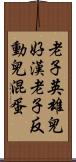 老子英雄兒
好漢老子反
動兒混蛋